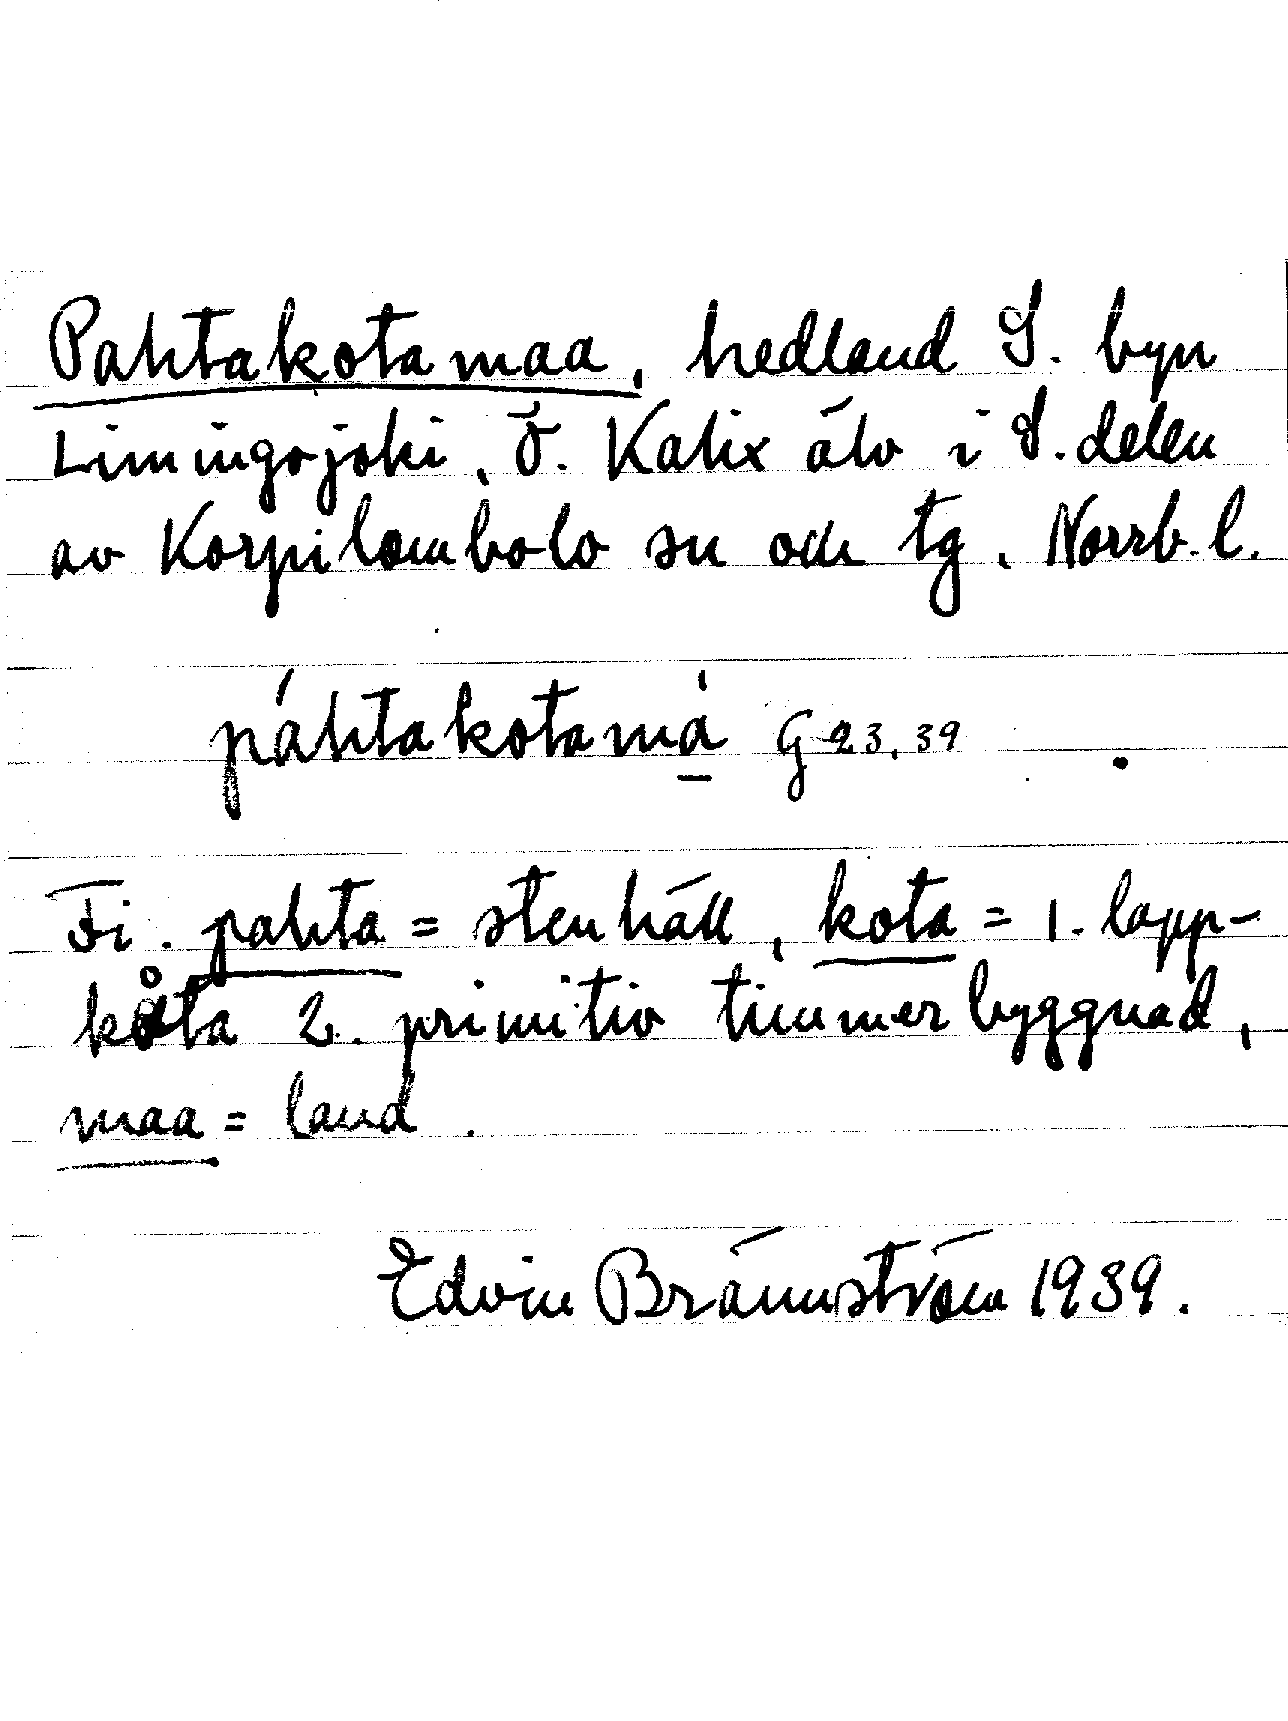 Pahtakotamaa, hedland S. byn
Limingojoki, Ö. Kalix älv i S. delen
av Korpilombolo sn och tg, Norrb. l.
páhtakotamà̱ G 23, 39
Fi. pahta = stenhäll, kota = 1. lapp-
kåta 2. primitiv timmerbyggnad,
maa = land.
Edvin Brännström 1939.